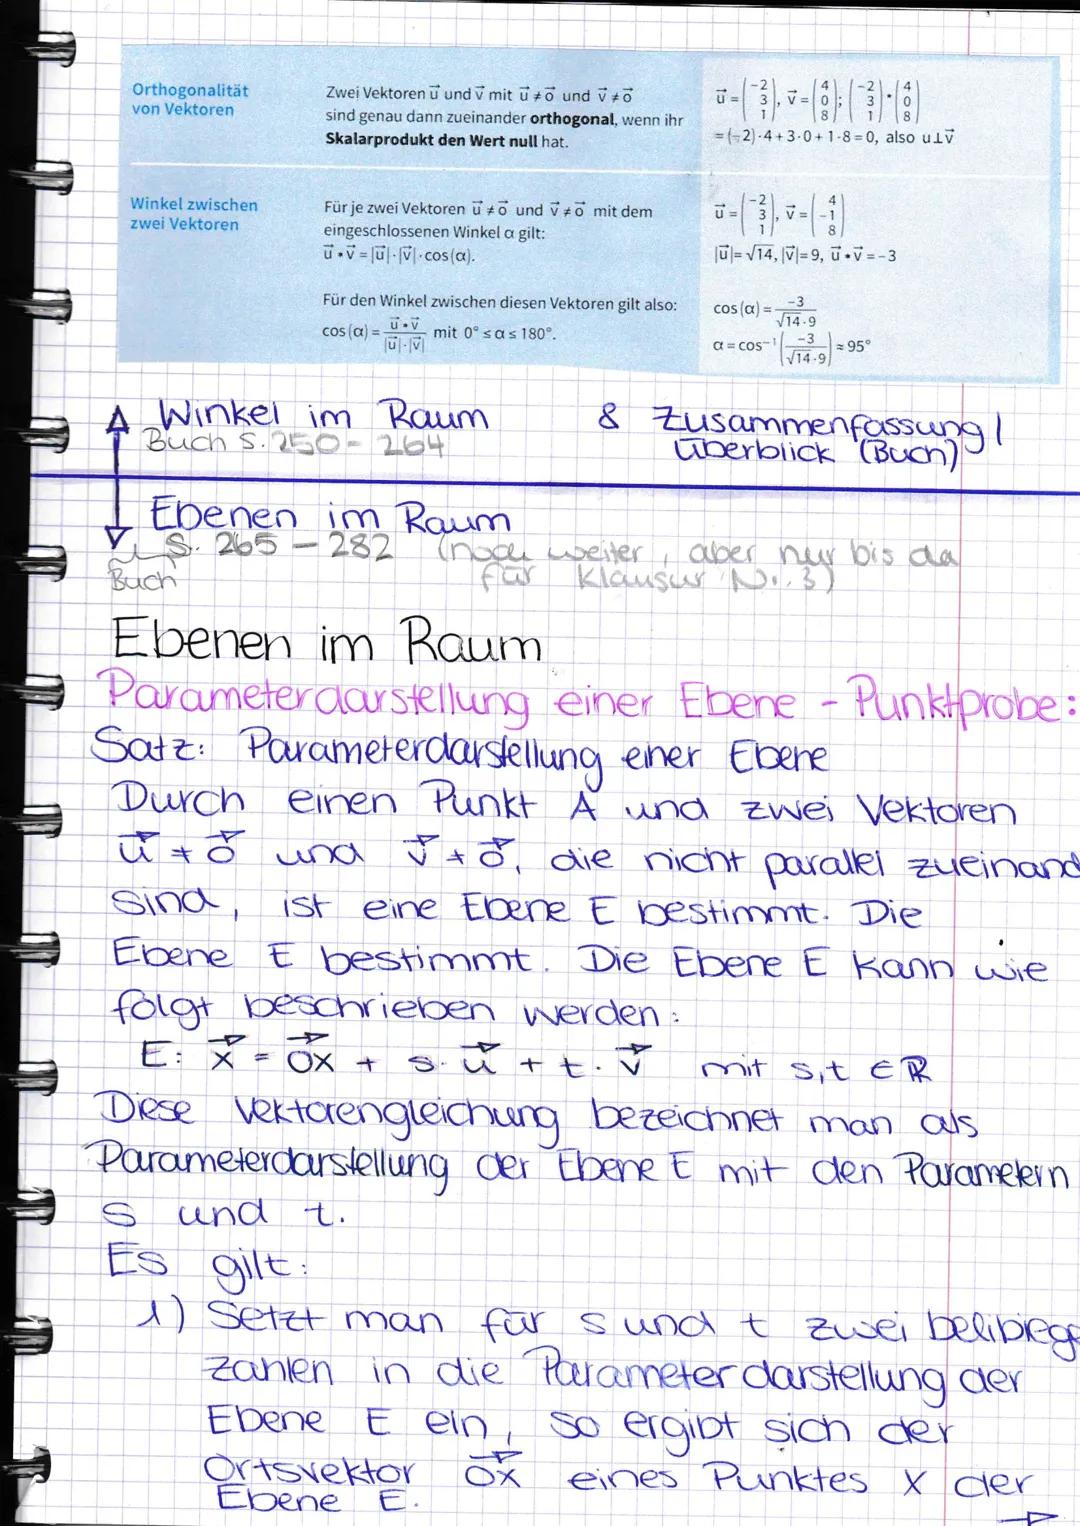 Orthogonalität
von Vektoren
Zwei Vektoren u⃗ und v⃗ mit u⃗ ≠ o⃗ und v⃗ ≠ o⃗
sind genau dann zueinander orthogonal, wenn ihr
Skalarprodukt den Wert null hat.
u⃗ = (-2 3 1), v⃗ = (4 0 8); (-2 3 1) • (4 0 8)
= (-2)·4 + 3·0 + 1·8 = 0, also u⊥v⃗
Winkel zwischen
zwei Vektoren
Für je zwei Vektoren u⃗ ≠ o⃗ und v⃗ ≠ o⃗ mit dem
eingeschlossenen Winkel α gilt:
u⃗ • v⃗ = |u⃗|·|v⃗|·cos(α).
Für den Winkel zwischen diesen Vektoren gilt also:
cos(α) = u⃗•v⃗ / |u⃗|·|v⃗| mit 0° ≤ α ≤ 180°.
u⃗ = (-2 3 1), v⃗ = (4 -1 8)
|u⃗| = √14, |v⃗| = 9, u⃗ • v⃗ = -3
cos(α) = -3 / √14·9
α = cos⁻¹(-3 / √14·9) ≈ 95°
Winkel im Raum & Zusammenfassung /
Buch S. 250 - 264 Überblick (Buch)
Ebenen im Raum
S. 265 - 282 (noch weiter, aber nur bis da
Buch für Klausur Nr. 3)
Ebenen im Raum
Parameterdarstellung einer Ebene - Punktprobe:
Satz: Parameterdarstellung einer Ebene
Durch einen Punkt A und zwei Vektoren
u⃗ ≠ o⃗ und v⃗ ≠ o⃗, die nicht parallel zueinand
sind, ist eine Ebene E bestimmt. Die
Ebene E bestimmt. Die Ebene E kann wie
folgt beschrieben werden:
E: x⃗ = OX⃗ + s·u⃗ + t·v⃗ mit s,t ∈ ℝ
Diese Vektorengleichung bezeichnet man als
Parameterdarstellung der Ebene E mit den Parametern
s und t.
Es gilt:
1) Setzt man für s und t zwei belibiege
Zahlen in die Parameterdarstellung der
Ebene E ein, so ergibt sich der
Ortsvektor OX⃗ eines Punktes X der
Ebene E.